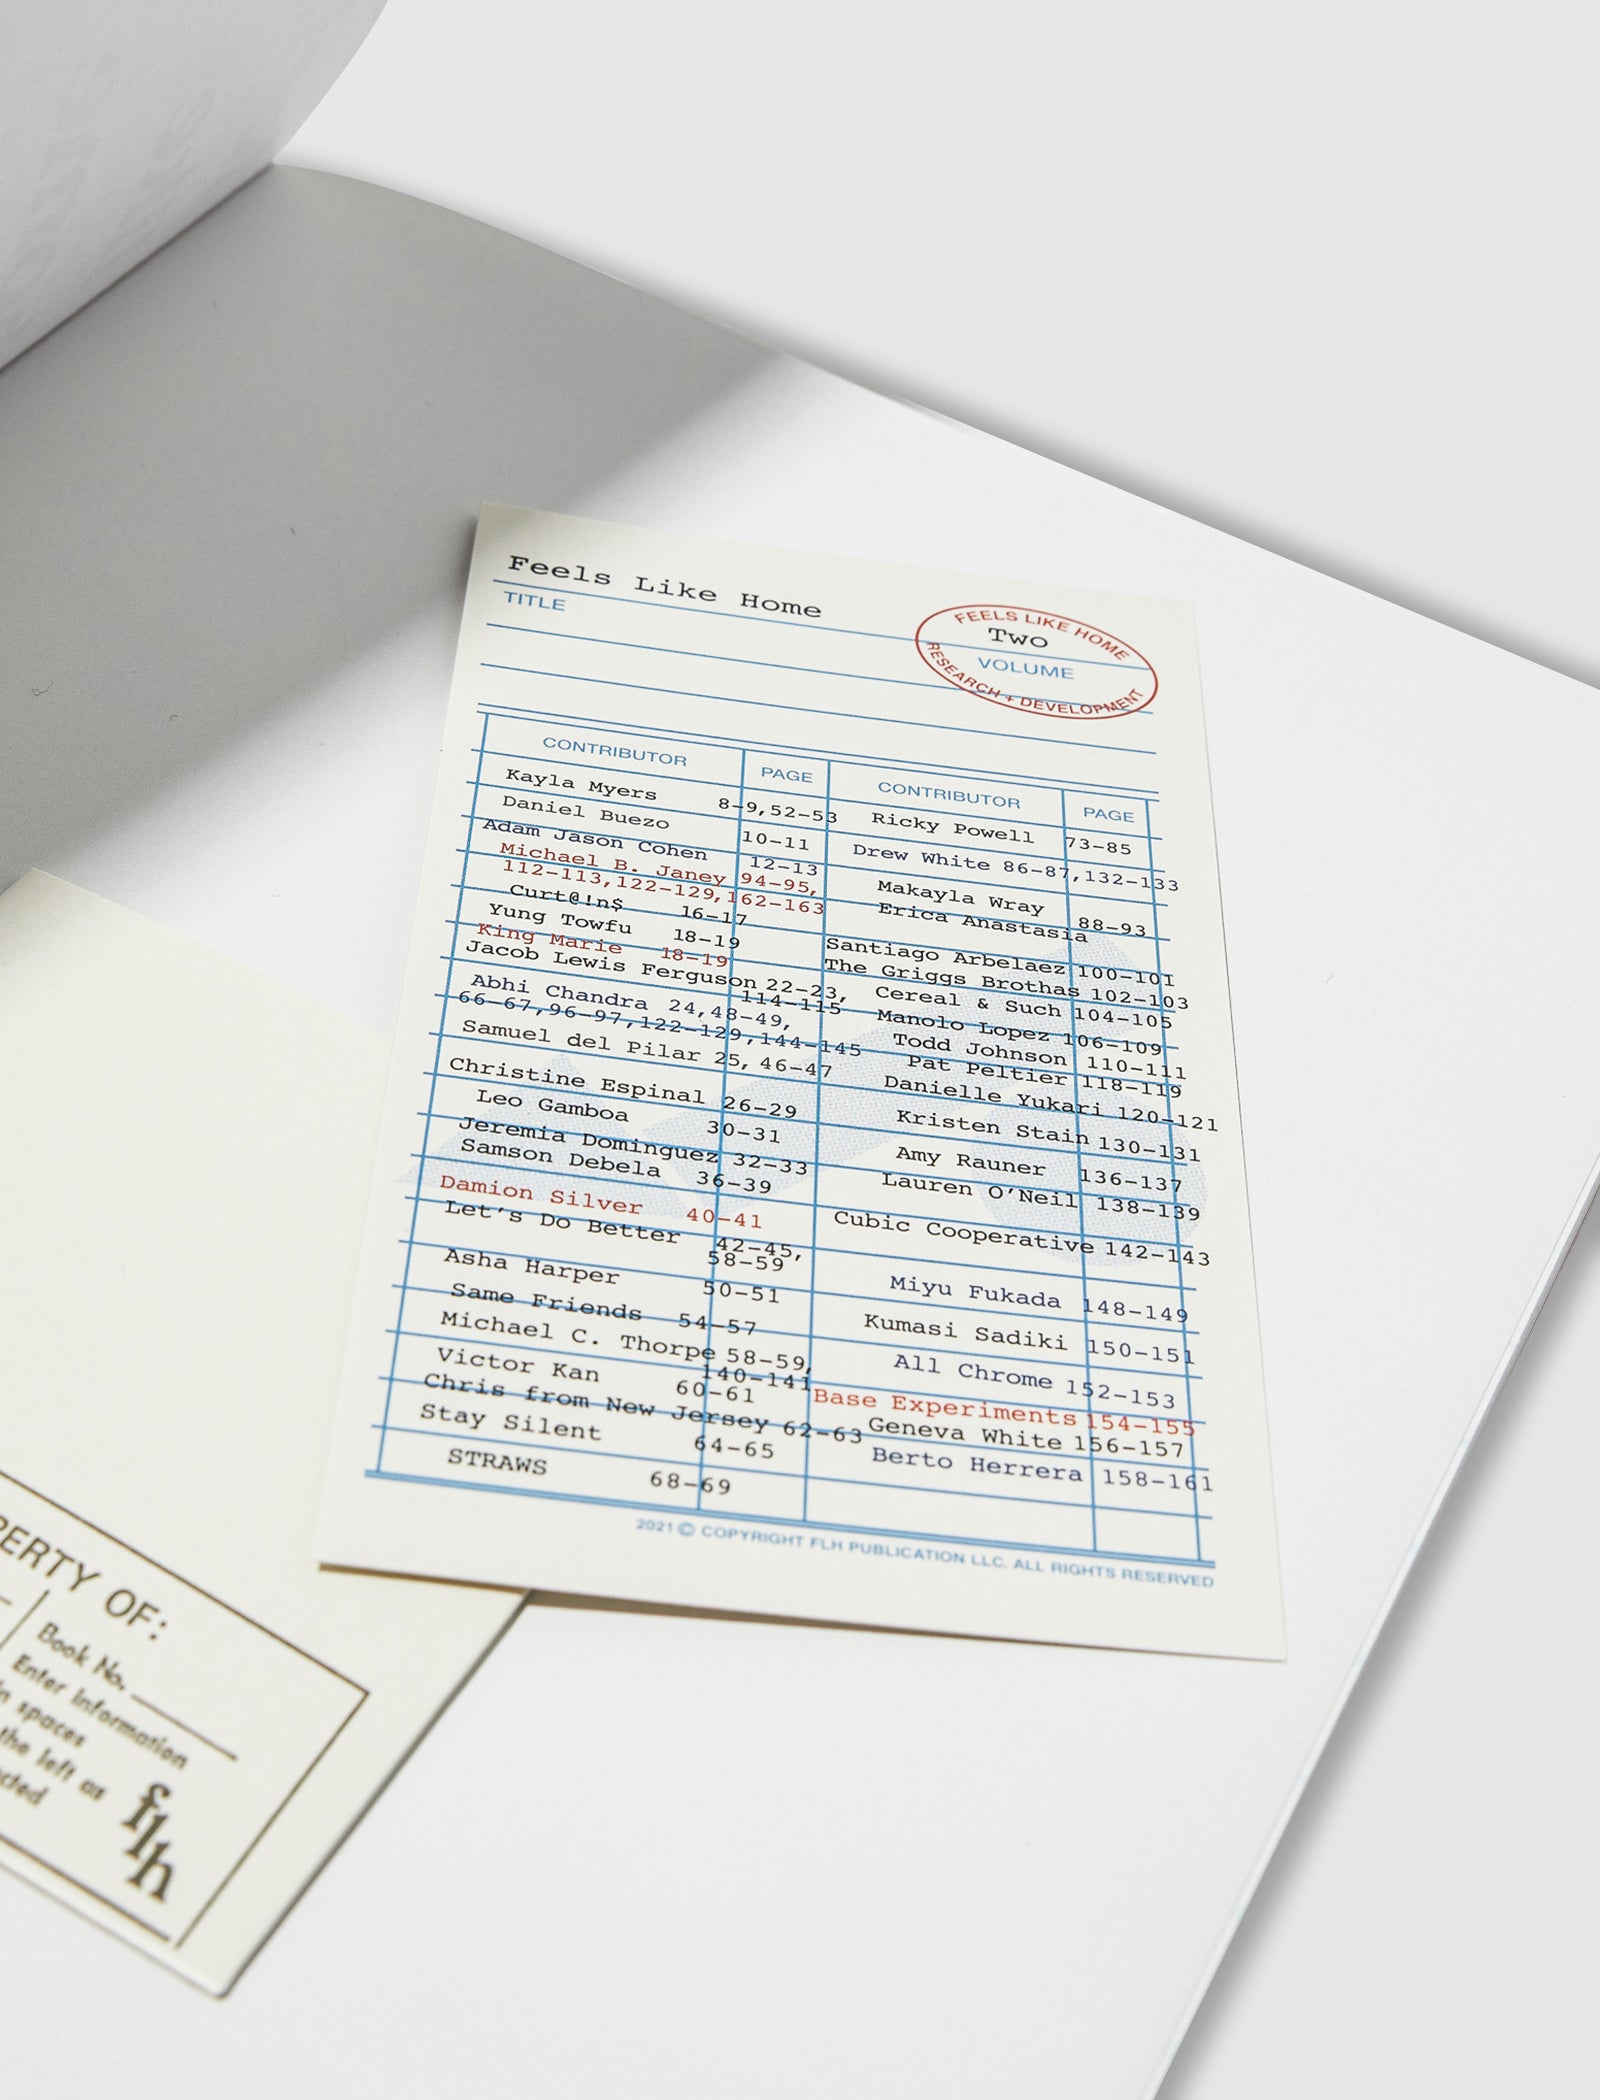 Feels Like Home
TITLE
FEELS LIKE HOME
Two
VOLUME
RESEARCH + DEVELOPMENT
CONTRIBUTOR PAGE
Kayla Myers 8-9,52-53
Daniel Buezo 10-11
Adam Jason Cohen 12-13
Michael B. Janey 94-95,
112-113,122-129,162-163
Curt@!n$ 16-17
Yung Towfu 18-19
King Marie 18-19
Jacob Lewis Ferguson 22-23,
114-115
Abhi Chandra 24,48-49,
66-67,96-97,122-129,144-145
Samuel del Pilar 25, 46-47
Christine Espinal 26-29
Leo Gamboa 30-31
Jeremia Dominguez 32-33
Samson Debela 36-39
Damion Silver 40-41
Let's Do Better 42-45,
58-59
Asha Harper 50-51
Same Friends 54-57
Michael C. Thorpe 58-59,
140-141
Victor Kan 60-61
Chris from New Jersey 62-63
Stay Silent 64-65
STRAWS 68-69
CONTRIBUTOR PAGE
Ricky Powell 73-85
Drew White 86-87,132-133
Makayla Wray 88-93
Erica Anastasia
Santiago Arbelaez 100-101
The Griggs Brothas 102-103
Cereal & Such 104-105
Manolo Lopez 106-109
Todd Johnson 110-111
Pat Peltier 118-119
Danielle Yukari 120-121
Kristen Stain 130-131
Amy Rauner 136-137
Lauren O'Neil 138-139
Cubic Cooperative 142-143
Miyu Fukada 148-149
Kumasi Sadiki 150-151
All Chrome 152-153
Base Experiments 154-155
Geneva White 156-157
Berto Herrera 158-161
2021 © COPYRIGHT FLH PUBLICATION LLC. ALL RIGHTS RESERVED
PERTY OF:
Book No.
Enter information
in spaces
the left as
flh